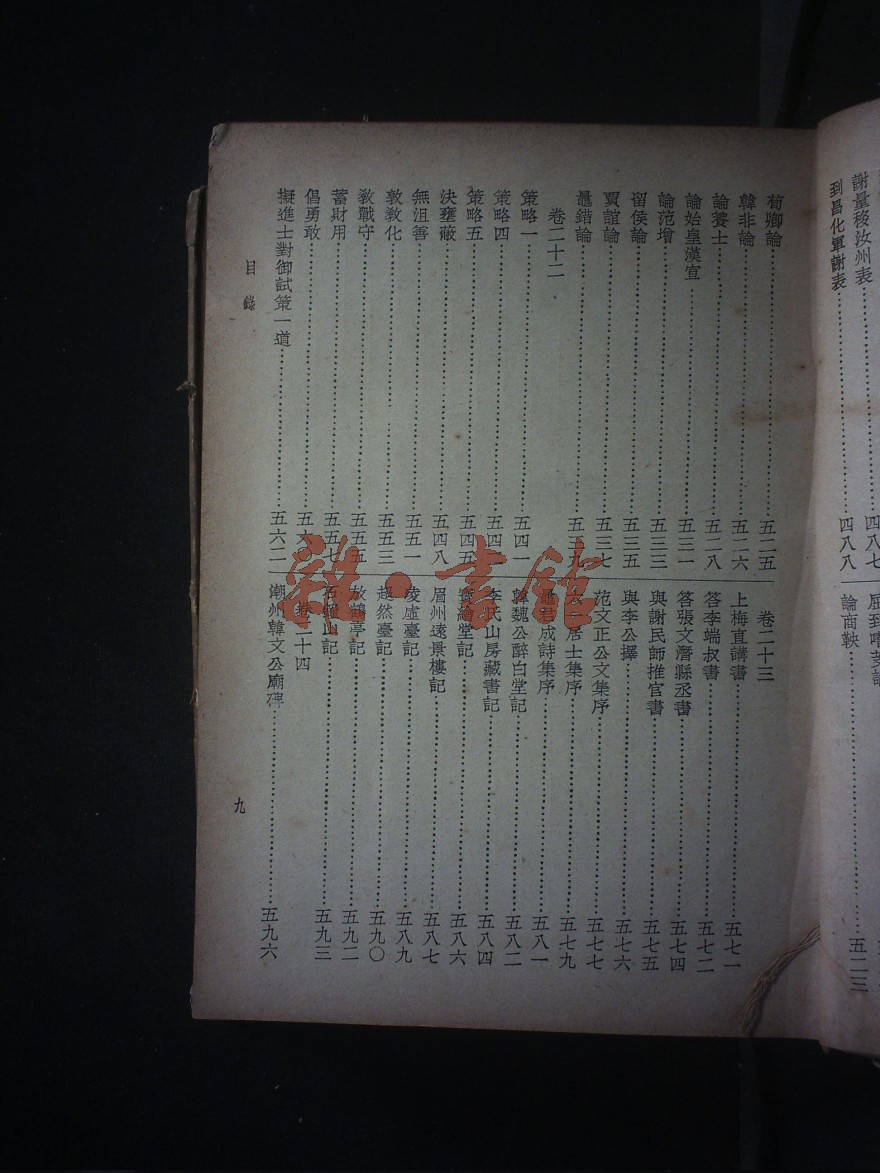 謝量移汝州表⋯⋯四八七
到昌化軍謝表⋯⋯四八八
論商鞅⋯⋯五二三
荀卿論⋯⋯五二五
韓非論⋯⋯五二六
論養士⋯⋯五二八
論始皇漢宣⋯⋯五三一
論范增⋯⋯五三三
留侯論⋯⋯五三五
賈誼論⋯⋯五三七
鼂錯論⋯⋯五三九
卷二十二
策略一⋯⋯五四一
策略四⋯⋯五四
策略五⋯⋯五四五
決壅蔽⋯⋯五四八
無沮善⋯⋯五五一
敦教化⋯⋯五五三
教戰守⋯⋯五五五
蓄財用⋯⋯五五七
倡勇敢⋯⋯五六
擬進士對御試策一道⋯⋯五六二
卷二十三
上梅直講書⋯⋯五七一
答李端叔書⋯⋯五七二
答張文潛縣丞書⋯⋯五七四
與謝民師推官書⋯⋯五七五
與李公擇⋯⋯五七六
范文正公文集序⋯⋯五七七
居士集序⋯⋯五七九
君成詩集序⋯⋯五八一
韓魏公醉白堂記⋯⋯五八二
李氏山房藏書記⋯⋯五八四
寶繪堂記⋯⋯五八六
眉州遠景樓記⋯⋯五八七
凌虛臺記⋯⋯五八九
超然臺記⋯⋯五九〇
放鶴亭記⋯⋯五九二
石鐘山記⋯⋯五九三
卷二十四
潮州韓文公廟碑⋯⋯五九六
目錄
九
雜·書館